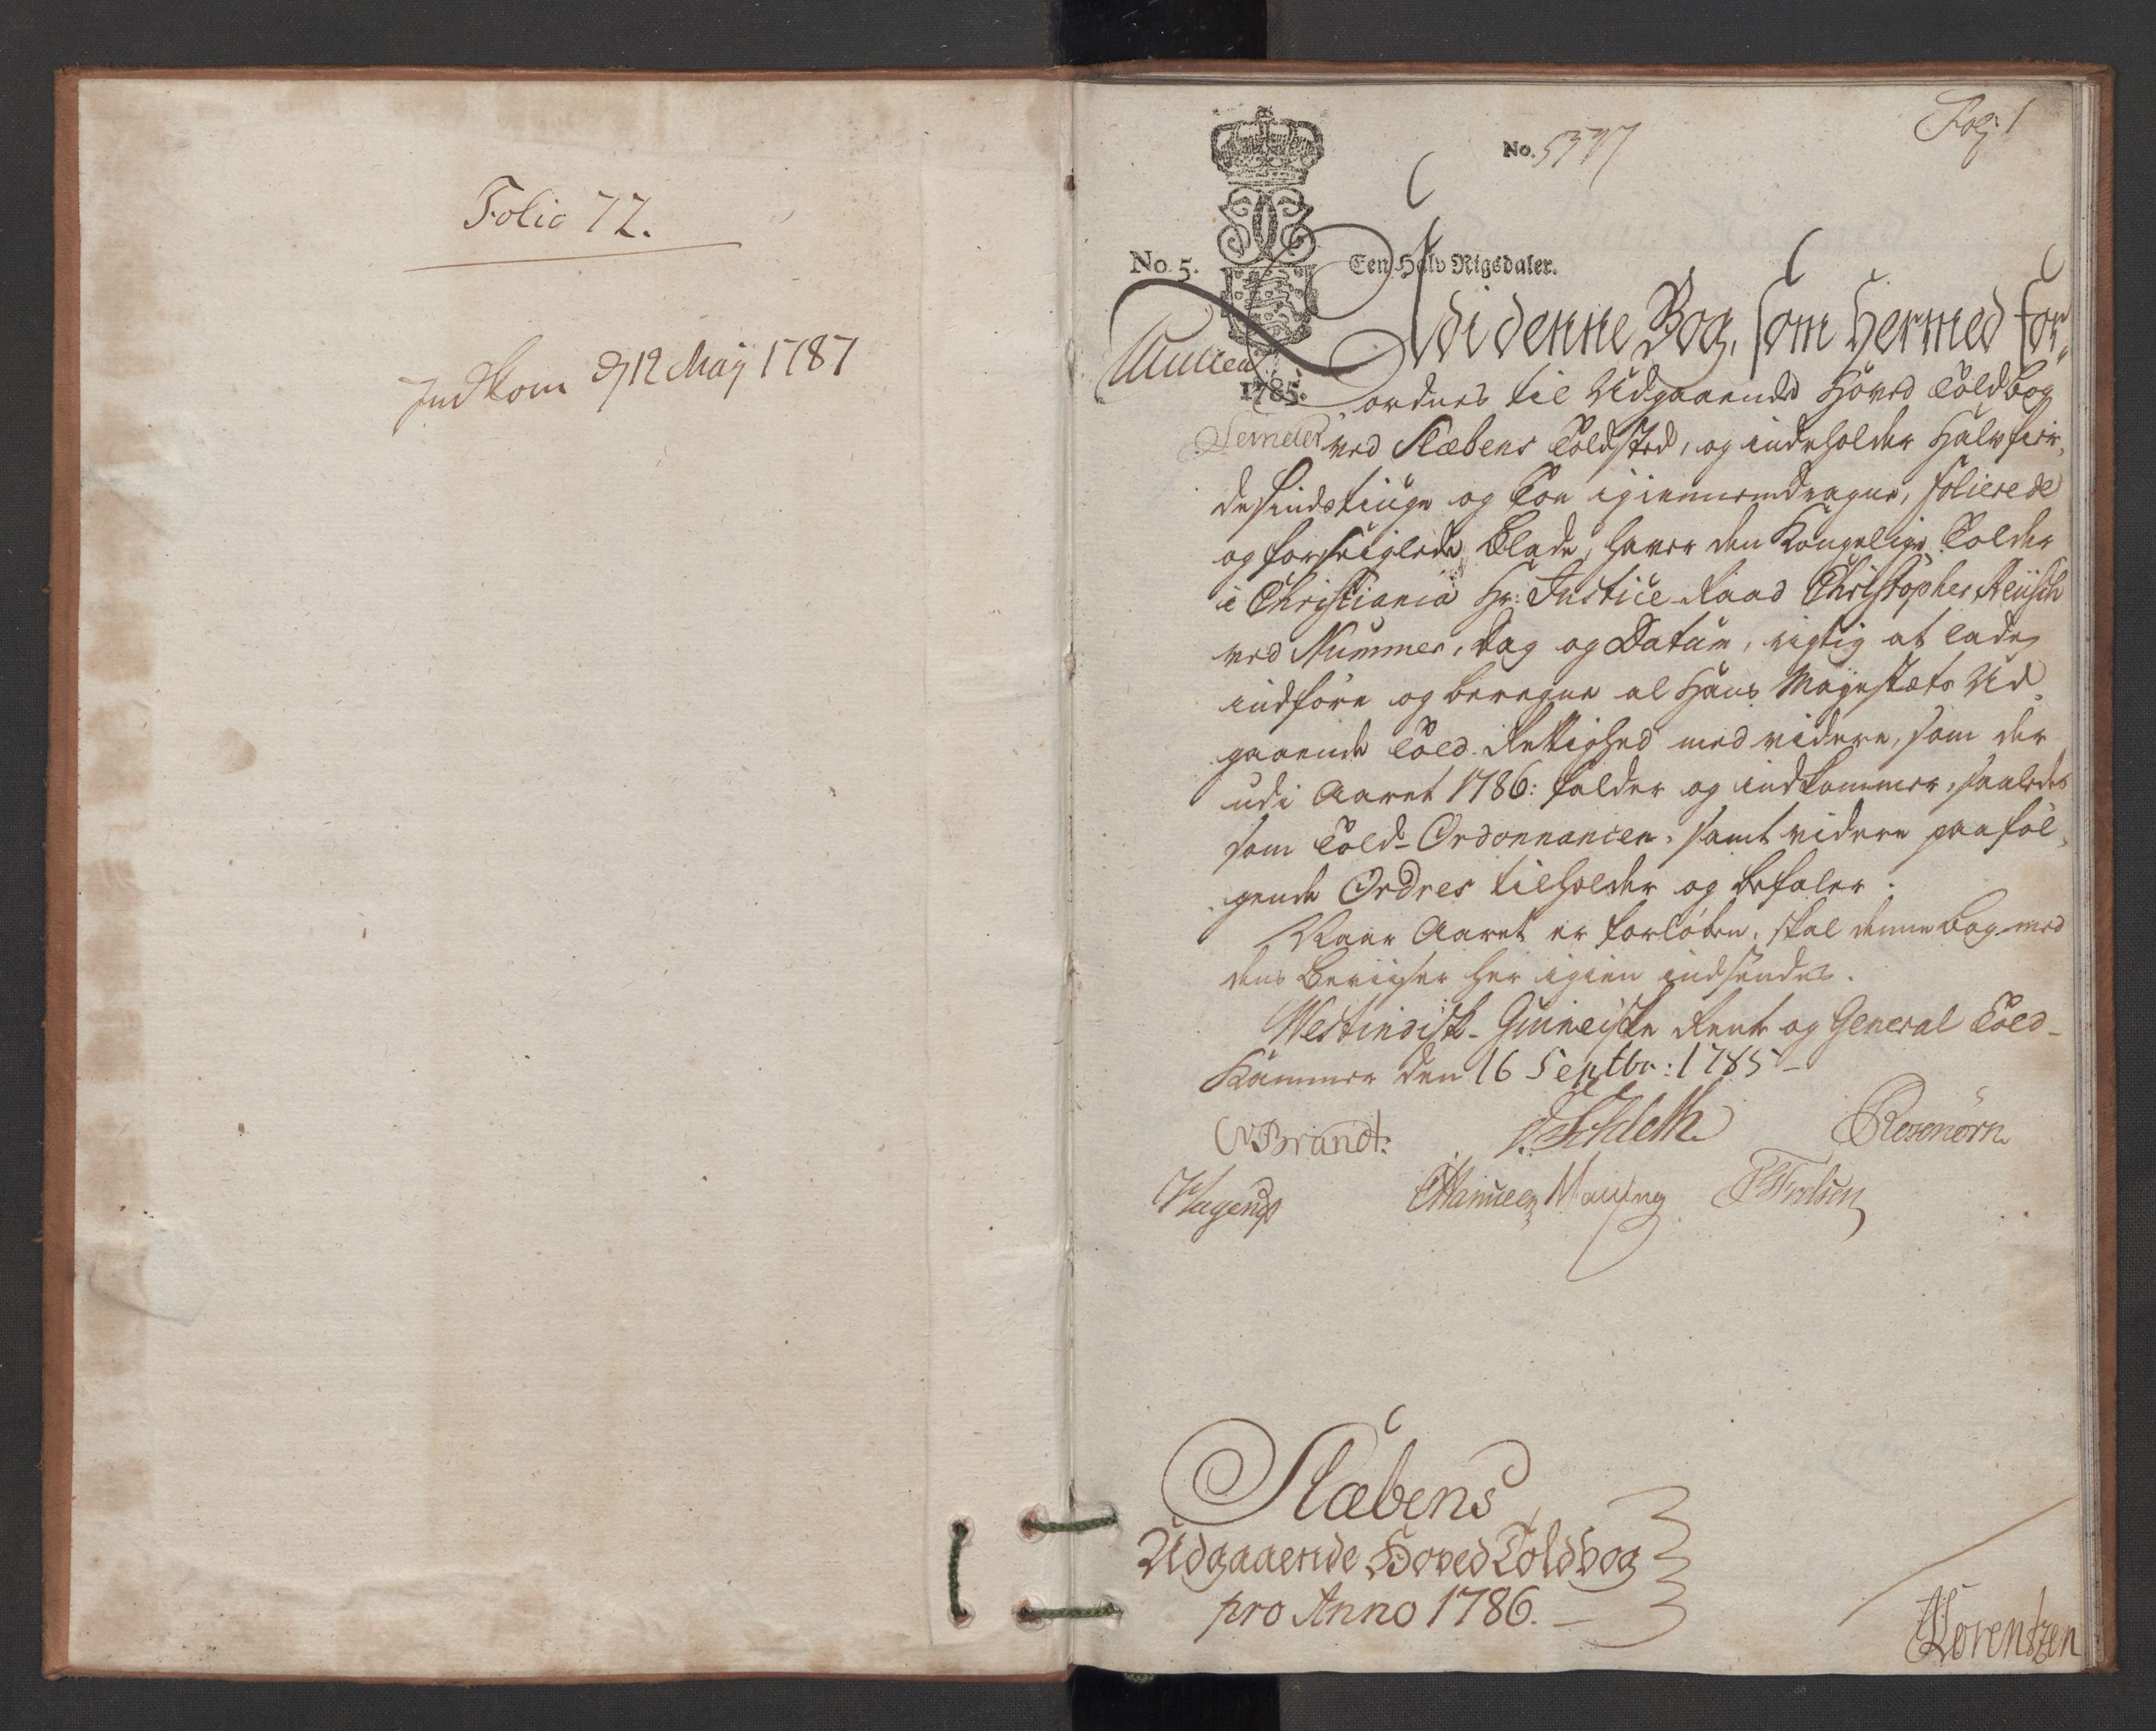 Folio 72.
Indkom d 12 Maÿ 1787
Fol: 1
No. 5377
No. 5.
Een Halv Rigsdaler.
1785.
Udi denne Bog, som hermed for„
ordnes til Udgaaende Hoved Toldbog
ved Slæbens Toldsted, og indeholder Halvfier„
desindstiuge og Toe igiennemdragne, folierede
og forseiglede Blade, haver den Kongelige Tolder
i Christiania Hr: Justice-Raad Christopher Reüsch
ved Nummer, Dag og Datum, rigtig at lade
indføre og beregne al Hans Mayestæts Ud„
gaaende Told-Rettighed med videre, som der
udi Aaret 1786: falder og indkommer, saaledes
som Told-Ordonnancen, samt videre paaføl„
gende Ordres tilholder og befaler.
Naar Aaret er forløben, skal denne Bog med
dens Beviiser her igien indsendes.
Westindisk-Guineiske Rente og General Told-
Kammer den 16 Septbr: 1785
Brandt.
Schleth
Rosenørn
Hagerup
Slæbens
Udgaaende Hoved Toldbog
pro Anno 1786.
Lorentzen